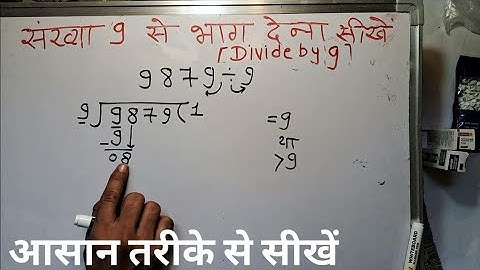 संख्या 9 से भाग देना सीखें
[Divide by 9]
9879÷9
9)9879(1
-9
08
=9
या
>9
आसान तरीके से सीखें
WHITEBOARD